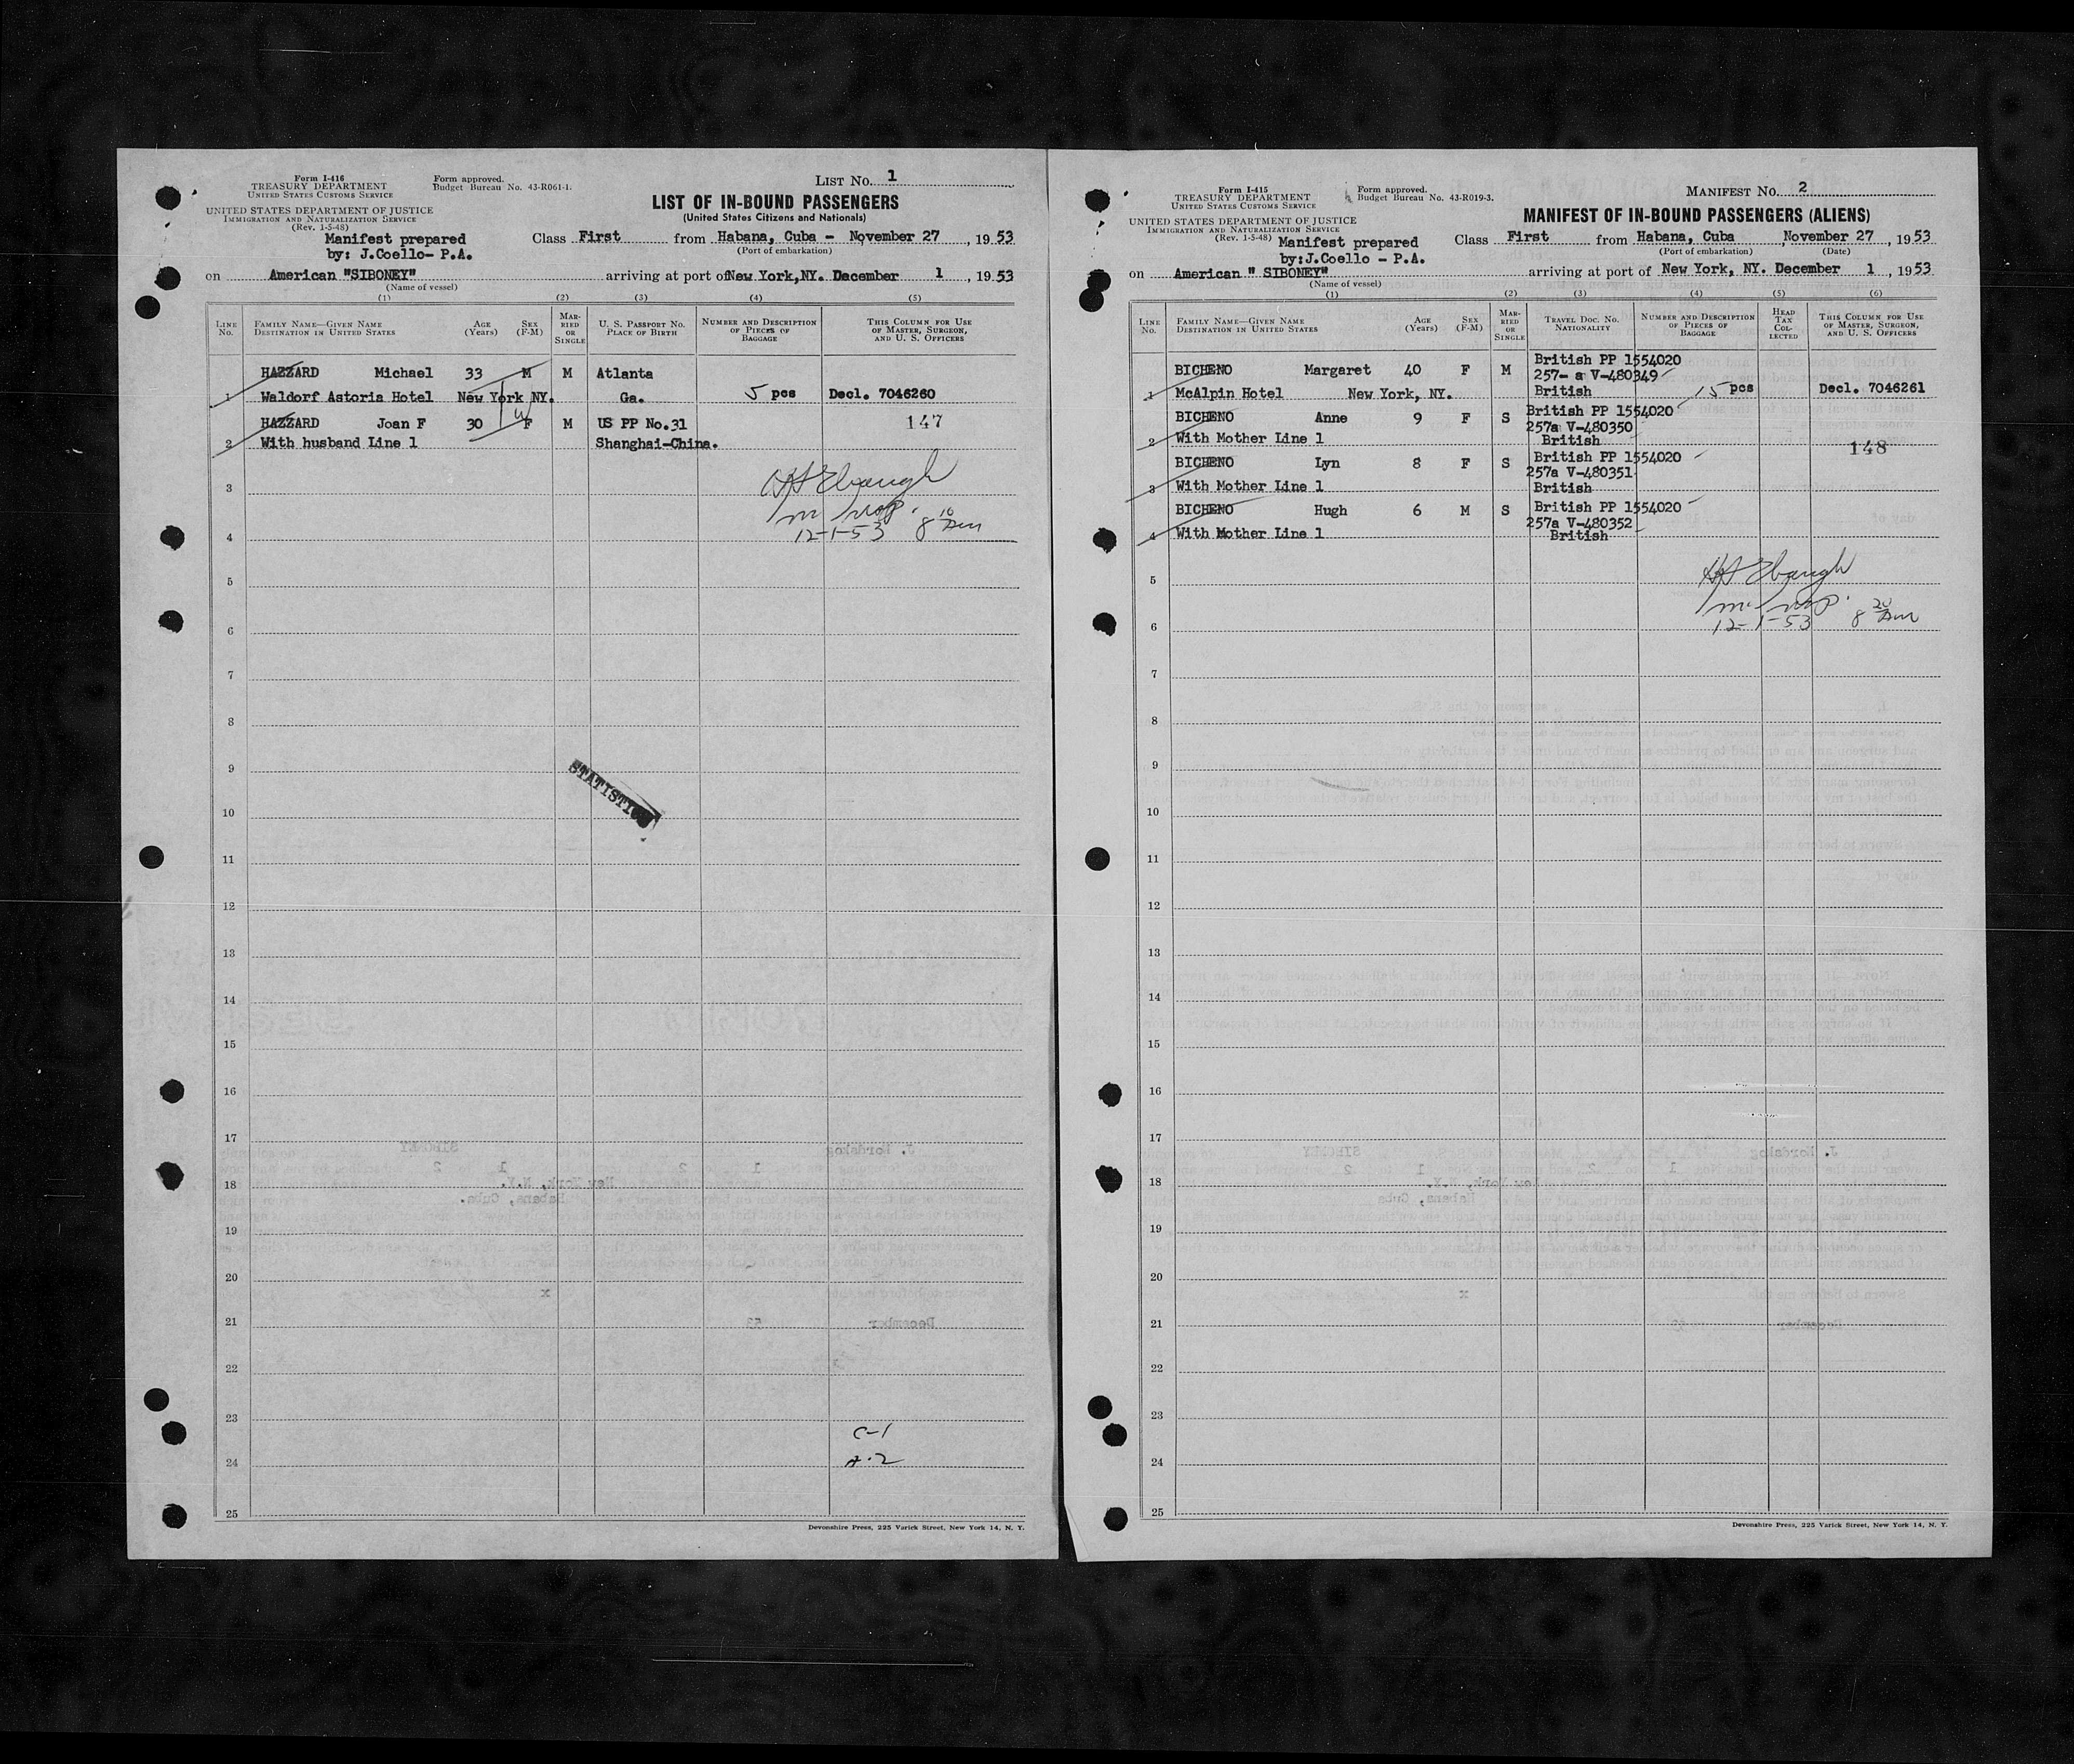 Form I-416
TREASURY DEPARTMENT
UNITED STATES CUSTOMS SERVICE
Form approved.
Budget Bureau No. 43-R061-1.
LIST NO. 1
UNITED STATES DEPARTMENT OF JUSTICE
IMMIGRATION AND NATURALIZATION SERVICE
(Rev. 1-5-48)
LIST OF IN-BOUND PASSENGERS
(United States Citizens and Nationals)
Manifest prepared
by: J.Coello- P.A.
Class First from Habana, Cuba - November 27, 1953
(Port of embarkation)
on American "SIBONEY" arriving at port of New York,NY. December 1, 1953
(Name of vessel)
(1) (2) (3) (4) (5)
LINE NO.
FAMILY NAME—GIVEN NAME
DESTINATION IN UNITED STATES
AGE (Years)
SEX (F-M)
MARRIED OR SINGLE
U. S. PASSPORT NO.
PLACE OF BIRTH
NUMBER AND DESCRIPTION OF PIECES OF BAGGAGE
THIS COLUMN FOR USE OF MASTER, SURGEON, AND U. S. OFFICERS
HAZZARD Michael 33 M M Atlanta
1 Waldorf Astoria Hotel New York NY. Ga. 5 pcs Decl. 7046260
HAZZARD Joan F 30 F M US PP No.31 147
2 With husband Line 1 Shanghai-China.
3
12-1-53 8 10 Am
4
5
6
7
8
9
STATISTICS
10
11
12
13
14
15
16
17
18
19
20
21
22
23
C-1
24
A-2
25
Devonshire Press, 225 Varick Street, New York 14, N. Y.
Form I-415
TREASURY DEPARTMENT
UNITED STATES CUSTOMS SERVICE
Form approved.
Budget Bureau No. 43-R019-3.
MANIFEST NO. 2
UNITED STATES DEPARTMENT OF JUSTICE
IMMIGRATION AND NATURALIZATION SERVICE
(Rev. 1-5-48)
MANIFEST OF IN-BOUND PASSENGERS (ALIENS)
Manifest prepared
by:J.Coello - P.A.
Class First from Habana, Cuba, November 27, 1953
(Port of embarkation) (Date)
on American " SIBONEY" arriving at port of New York, NY. December 1, 1953
(Name of vessel)
(1) (2) (3) (4) (5) (6)
LINE NO.
FAMILY NAME—GIVEN NAME
DESTINATION IN UNITED STATES
AGE (Years)
SEX (F-M)
MARRIED OR SINGLE
TRAVEL DOC. NO.
NATIONALITY
NUMBER AND DESCRIPTION OF PIECES OF BAGGAGE
HEAD TAX COLLECTED
THIS COLUMN FOR USE OF MASTER, SURGEON, AND U. S. OFFICERS
British PP 1554020
BICHENO Margaret 40 F M 257- a V-480349
1 McAlpin Hotel New York, NY. British 15 pcs Decl. 7046261
BICHENO Anne 9 F S British PP 1554020
257a V-480350
2 With Mother Line 1 British 148
BICHENO Lyn 8 F S British PP 1554020
257a V-480351
3 With Mother Line 1 British
BICHENO Hugh 6 M S British PP 1554020
257a V-480352
4 With Mother Line 1 British
5
12-1-53 8 20 Am
6
7
8
9
10
11
12
13
14
15
16
17
18
19
20
21
22
23
24
25
Devonshire Press, 225 Varick Street, New York 14, N. Y.